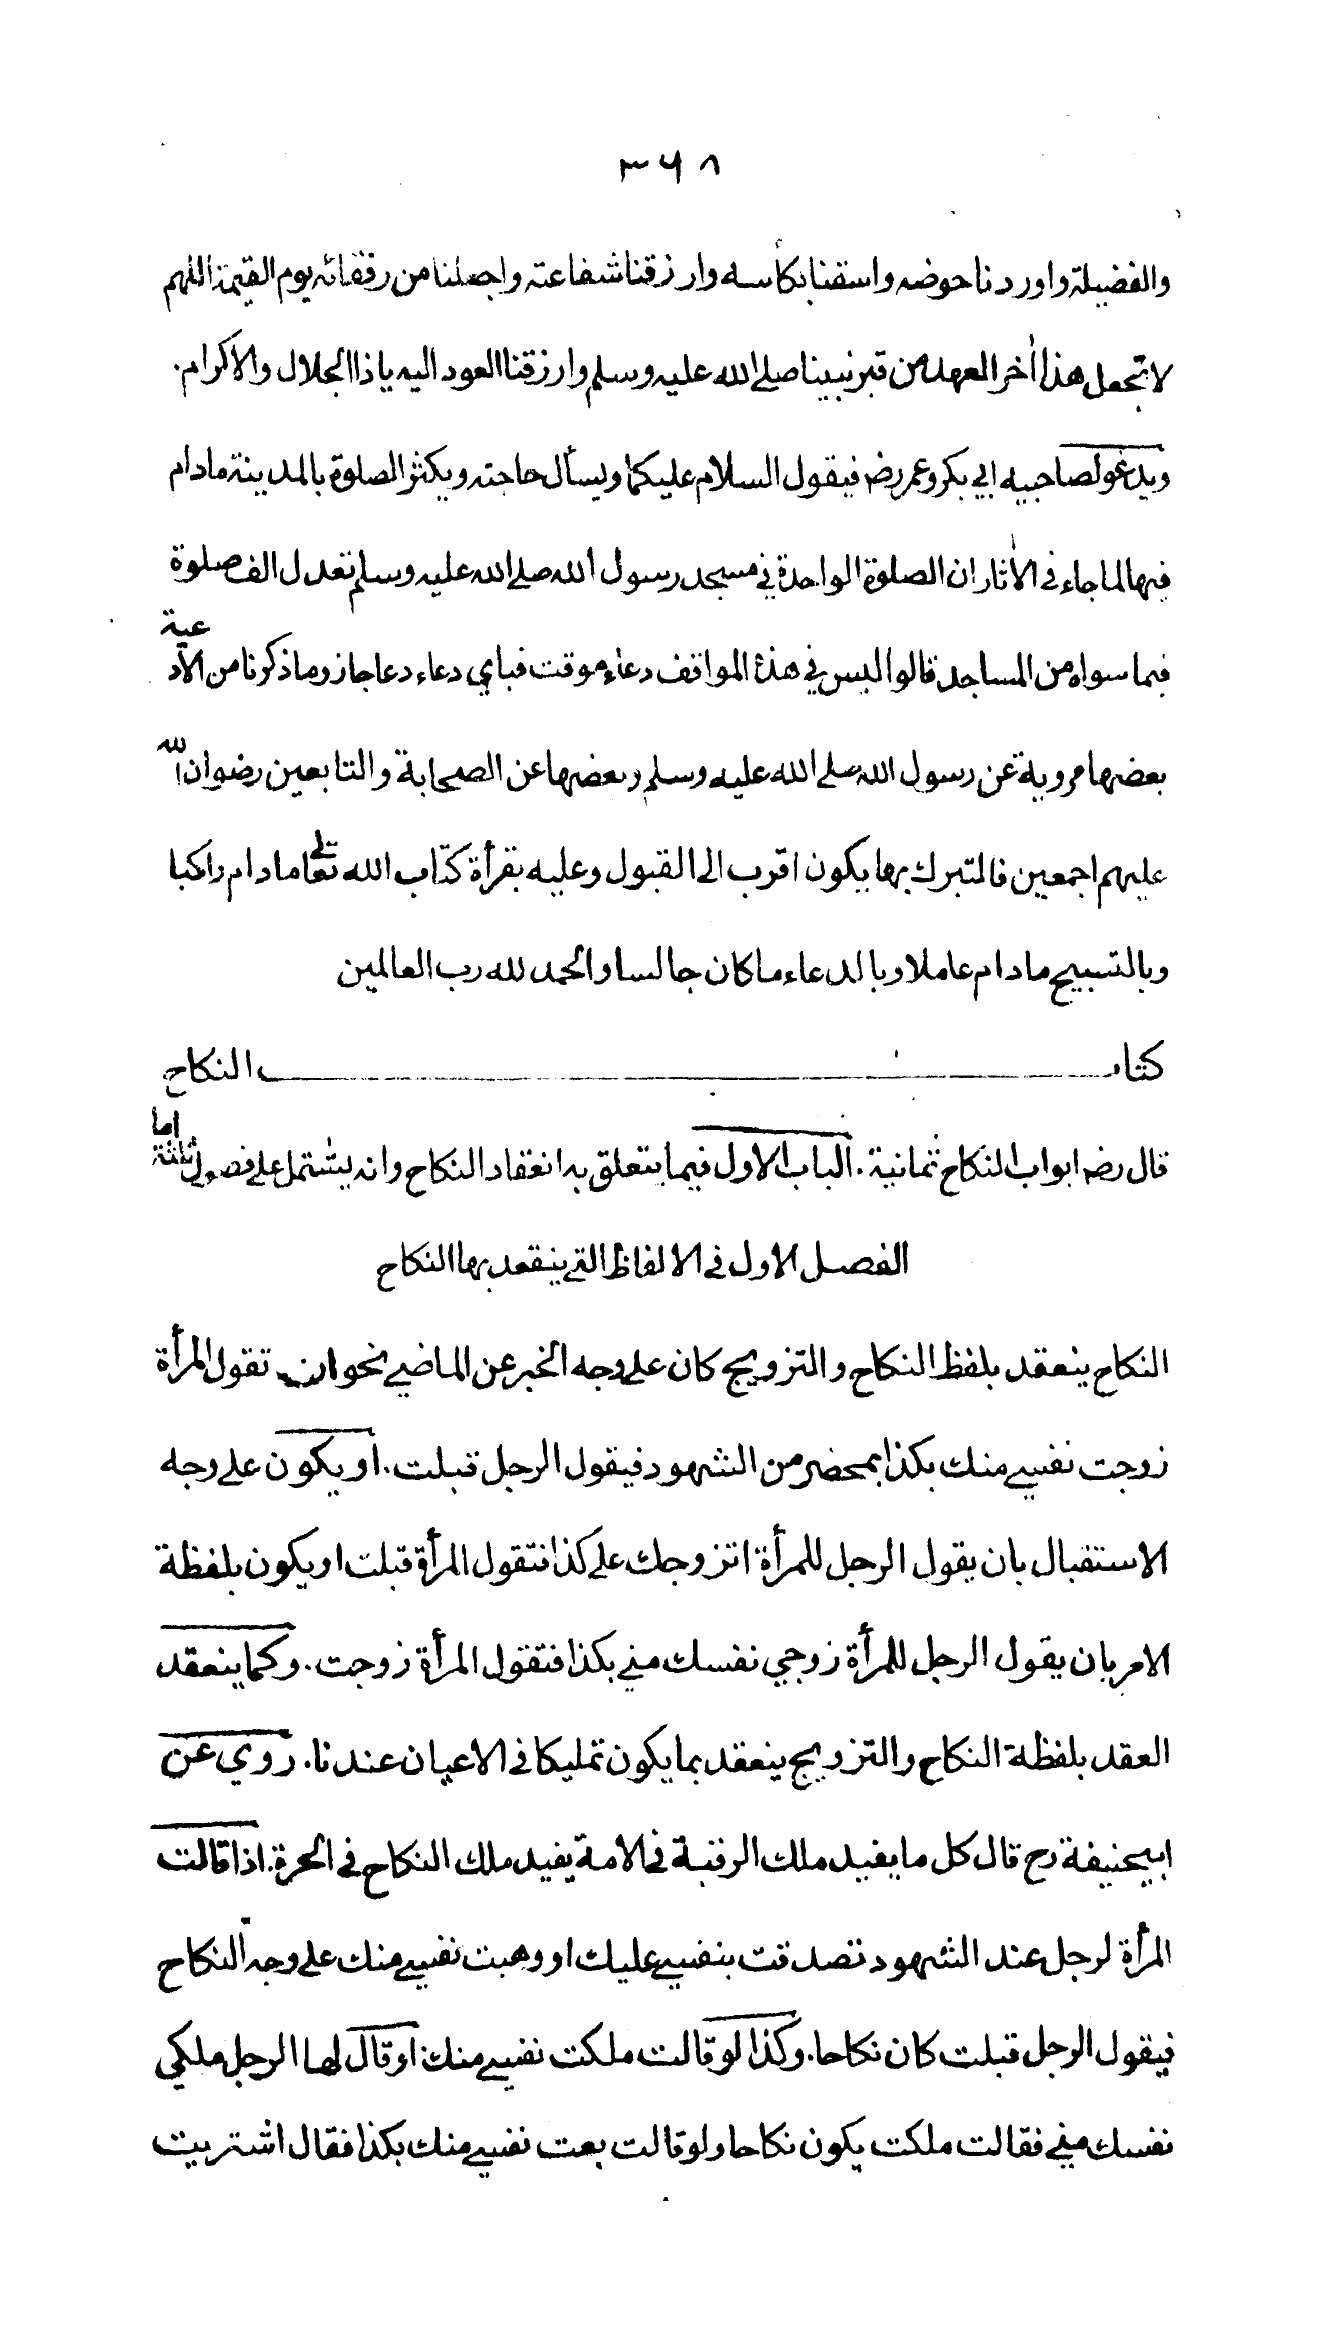 ۳۶۸
والفضيلة واوردنا حوضه واسقنا بكأسه وارزقنا شفاعته واجعلنا من رفقائه يوم القيمة اللهم
لا تجعل هذا أخر العهد من قبر نبينا صلى الله عليه وسلم وارزقنا العود اليه ياذا الجلال والاكرام.
ويدعو لصاحبيه ابي بكر وعمر رضه فيقول السلام عليكما ويسأل حاجته ويكثر الصلوة بالمدينة مادام
فيها لما جاء في الأثار ان الصلوة الواحدة في مسجد رسول الله صلى الله عليه وسلم تعدل الف صلوة
فيما سواه من المساجد قالوا ليس في هذه المواقف دعاء موقت فباي دعاء دعا جاز وما ذكرنا من الادعية
بعضها مروية عن رسول الله صلى الله عليه وسلم وبعضها عن الصحابة والتابعين رضوان الله
عليهم اجمعين فالتبرك بها يكون اقرب الى القبول وعليه بقرأة كتاب الله تعالى مادام راكبا
وبالتسبيح مادام عاملا وبالدعاء ما كان جالسا والحمد لله رب العالمين
كتاب النكاح
قال رضه ابواب النكاح ثمانية. الباب الاول فيما يتعلق به انعقاد النكاح وانه يشتمل على فصول ثلثة اما
الفصل الاول في الالفاظ التي ينعقد بها النكاح
النكاح ينعقد بلفظ النكاح والتزويج كان على وجه الخبر عن الماضي نحو ان تقول المرأة
زوجت نفسي منك بكذا بمحضر من الشهود فيقول الرجل قبلت. او يكون على وجه
الاستقبال بان يقول الرجل للمرأة اتزوجك على كذا فتقول المرأة قبلت او يكون بلفظة
الامر بان يقول الرجل للمرأة زوجي نفسك مني بكذا فتقول المرأة زوجت. وكما ينعقد
العقد بلفظة النكاح والتزويج ينعقد بما يكون تمليكا في الاعيان عندنا. روي عن
ابيحنيفة رح قال كل ما يفيد ملك الرقبة في الامة يفيد ملك النكاح في الحرة. اذا قالت
المرأة لرجل عند الشهود تصدقت بنفسي عليك او وهبت نفسي منك على وجه النكاح
فيقول الرجل قبلت كان نكاحا. وكذا لو قالت ملكت نفسي منك او قال لها الرجل ملكي
نفسك مني فقالت ملكت يكون نكاحا ولو قالت بعت نفسي منك بكذا فقال اشتريت